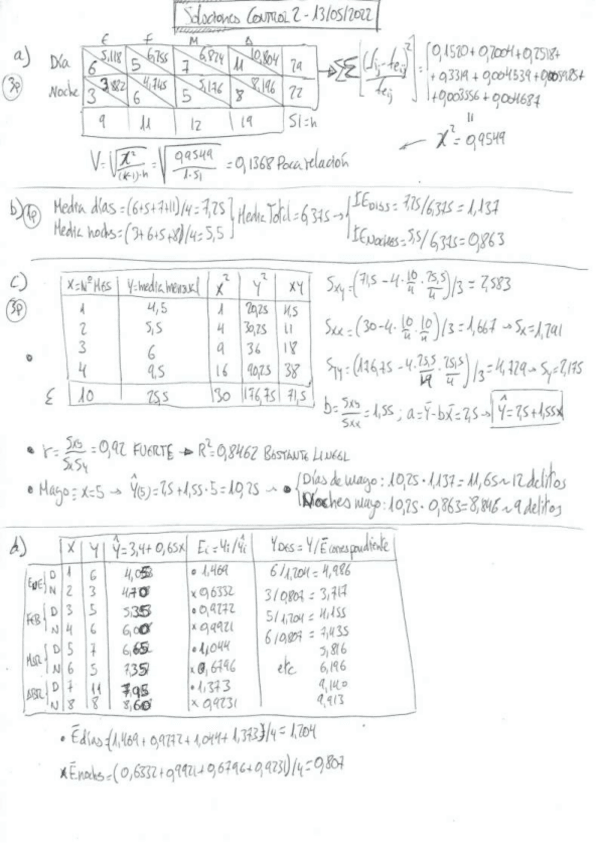 Soluciones Control 2 - 13/05/2022
a) 3p
E F M A
Día 6 5,118 5 6,255 7 6,824 11 10,804 29
Noche 3 3,882 6 4,745 5 5,176 8 8,196 22
9 11 12 19 51=n
→ ΣΣ[(fij-feij)²/feij] = [0,1520+0,2004+0,2518+
+0,3319+0,004539+0,005985+
+0,003556+0,004687
=
χ²=0,9549
V=√(χ²/((k-1)·n)) = √(0,9549/(1·51)) = 0,1368 Poca relación
b) 1p Media días=(6+5+7+11)/4=7,25
Media noches=(3+6+5+8)/4=5,5
Media Total=6,375 → IE DÍAS = 7,25/6,375=1,137
IE Noches=5,5/6,375=0,863
c) 3p
X=Nº MES Y=media mensual X² Y² XY
1 4,5 1 20,25 4,5
2 5,5 4 30,25 11
3 6 9 36 18
4 9,5 16 90,25 38
Σ 10 25,5 30 176,75 71,5
Sxy=(71,5-4·10/4·25,5/4)/3=2,583
Sxx=(30-4·10/4·10/4)/3=1,667→Sx=1,291
Syy=(176,75-4·25,5/4·25,5/4)/3=4,729→Sy=2,175
b=Sxy/Sxx=1,55; a=Ȳ-bx̄=2,5→Ŷ=2,5+1,55x
• r=Sxy/SxSy=0,92 FUERTE → R²=0,8462 BASTANTE LINEAL
• Mayo=x=5 → Ŷ(5)=2,5+1,55·5=10,25 → • Días de mayo: 10,25·1,137=11,65~12 delitos
Noches mayo: 10,25·0,863=8,846~9 delitos
d)
X Y Ŷ=3,4+0,65x Ei=Yi/Ŷi YDES=Y/Ē correspondiente
ENE D 1 6 4,05 • 1,469 6/1,204=4,986
N 2 3 4,70 x 0,6332 3/0,807=3,717
FEB D 3 5 5,35 • 0,9272 5/1,204=4,155
N 4 6 6,00 x 0,9921 6/0,807=7,435
MAR D 5 7 6,65 • 1,044 5,816
N 6 5 7,35 x 0,6796 etc 6,196
ABR D 7 11 7,95 • 1,373 9,140
N 8 8 8,60 x 0,9231 9,913
• Ēdías=(1,469+0,9272+1,044+1,373)/4=1,204
x Ēnoches=(0,6332+0,9921+0,6796+0,9231)/4=0,807